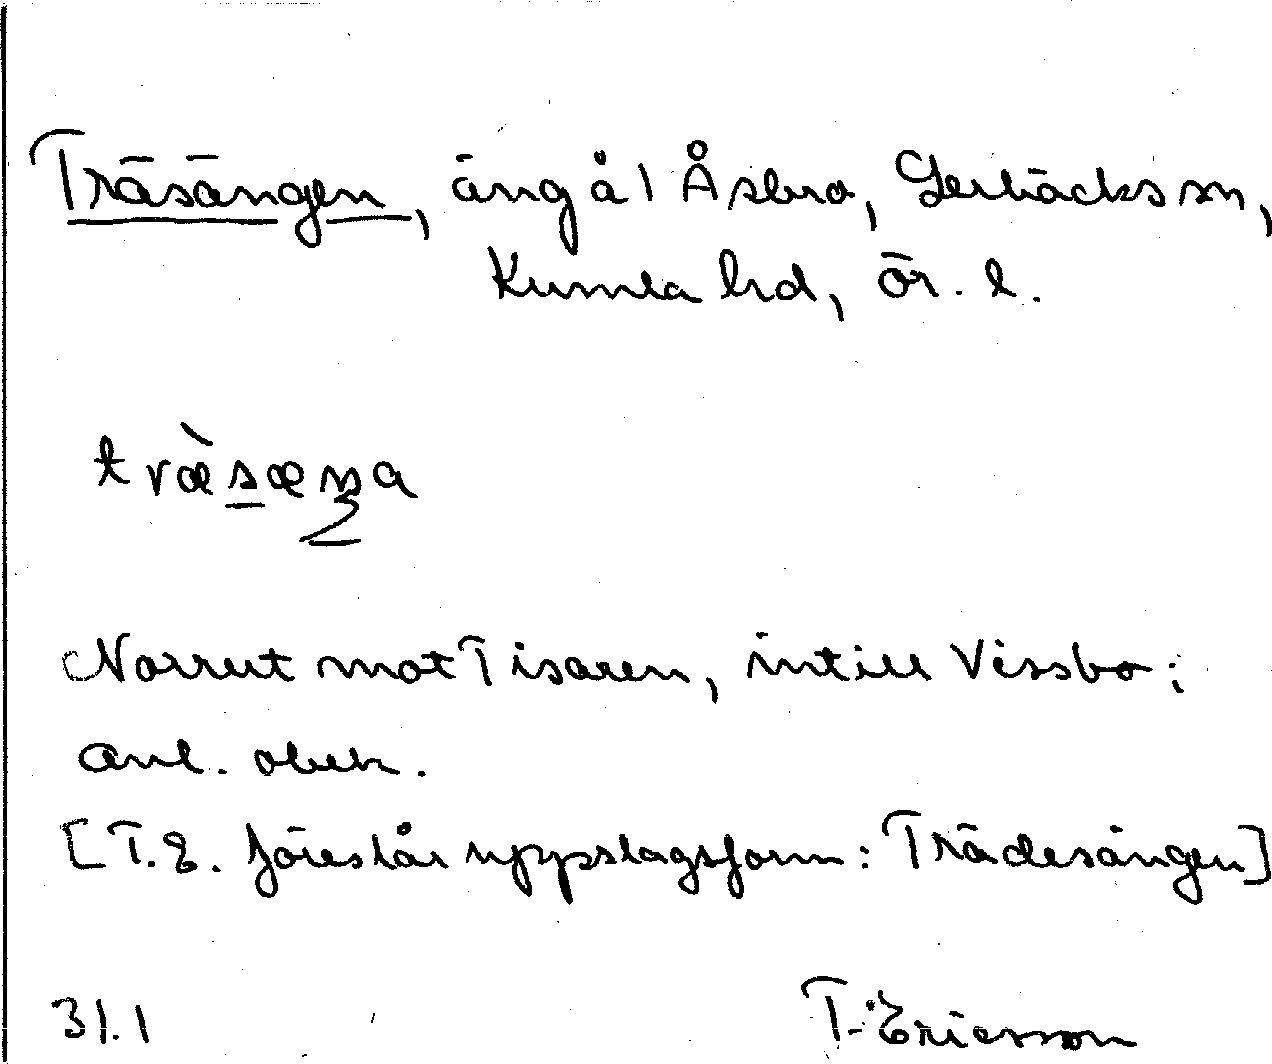 Träsängen, äng å 1 Åsbro, Lerbäcks sn,
Kumla hd, Ör. l.
træ̀sæŋa
Norrut mot Tisaren, intill Vissbo;
anl. obek.
[T.E. föreslår uppslagsform: Trädesängen]
31.1 T. Ericsson